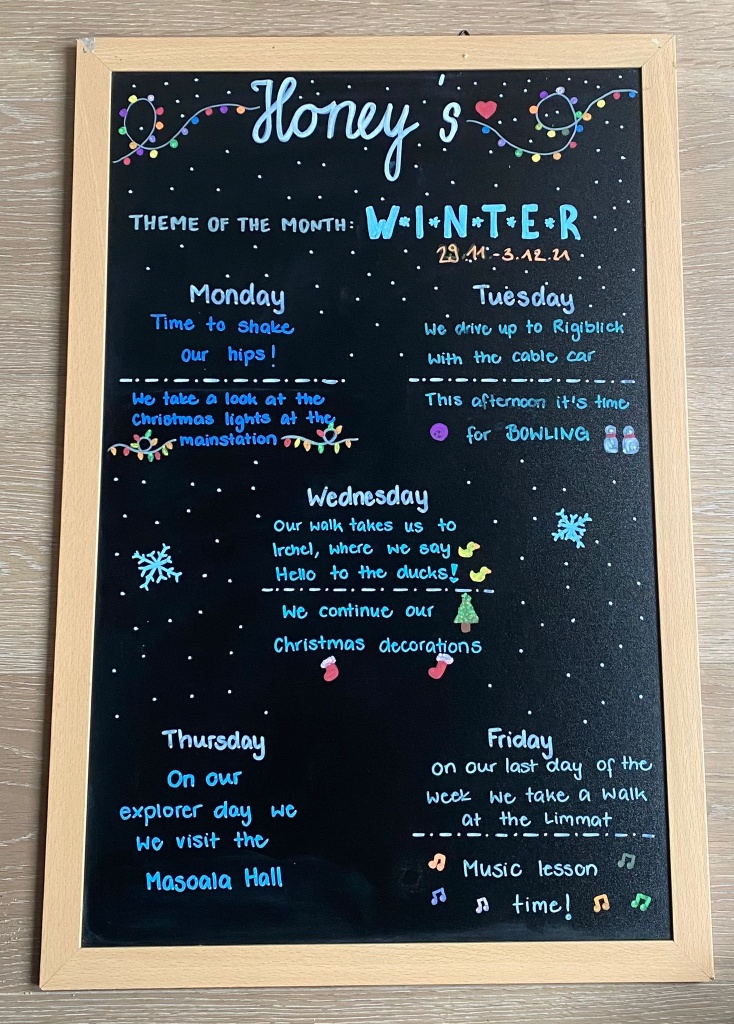 Honey's
THEME OF THE MONTH: W*I*N*T*E*R
29.11.-3.12.21
Monday
Time to shake
our hips!
We take a look at the
Christmas lights at the
mainstation
Tuesday
We drive up to Rigiblick
with the cable car
This afternoon it's time
for BOWLING
Wednesday
Our walk takes us to
Irchel, where we say
Hello to the ducks!
We continue our
Christmas decorations
Thursday
On our
explorer day we
we visit the
Masoala Hall
Friday
On our last day of the
week we take a walk
at the Limmat
Music lesson
time!